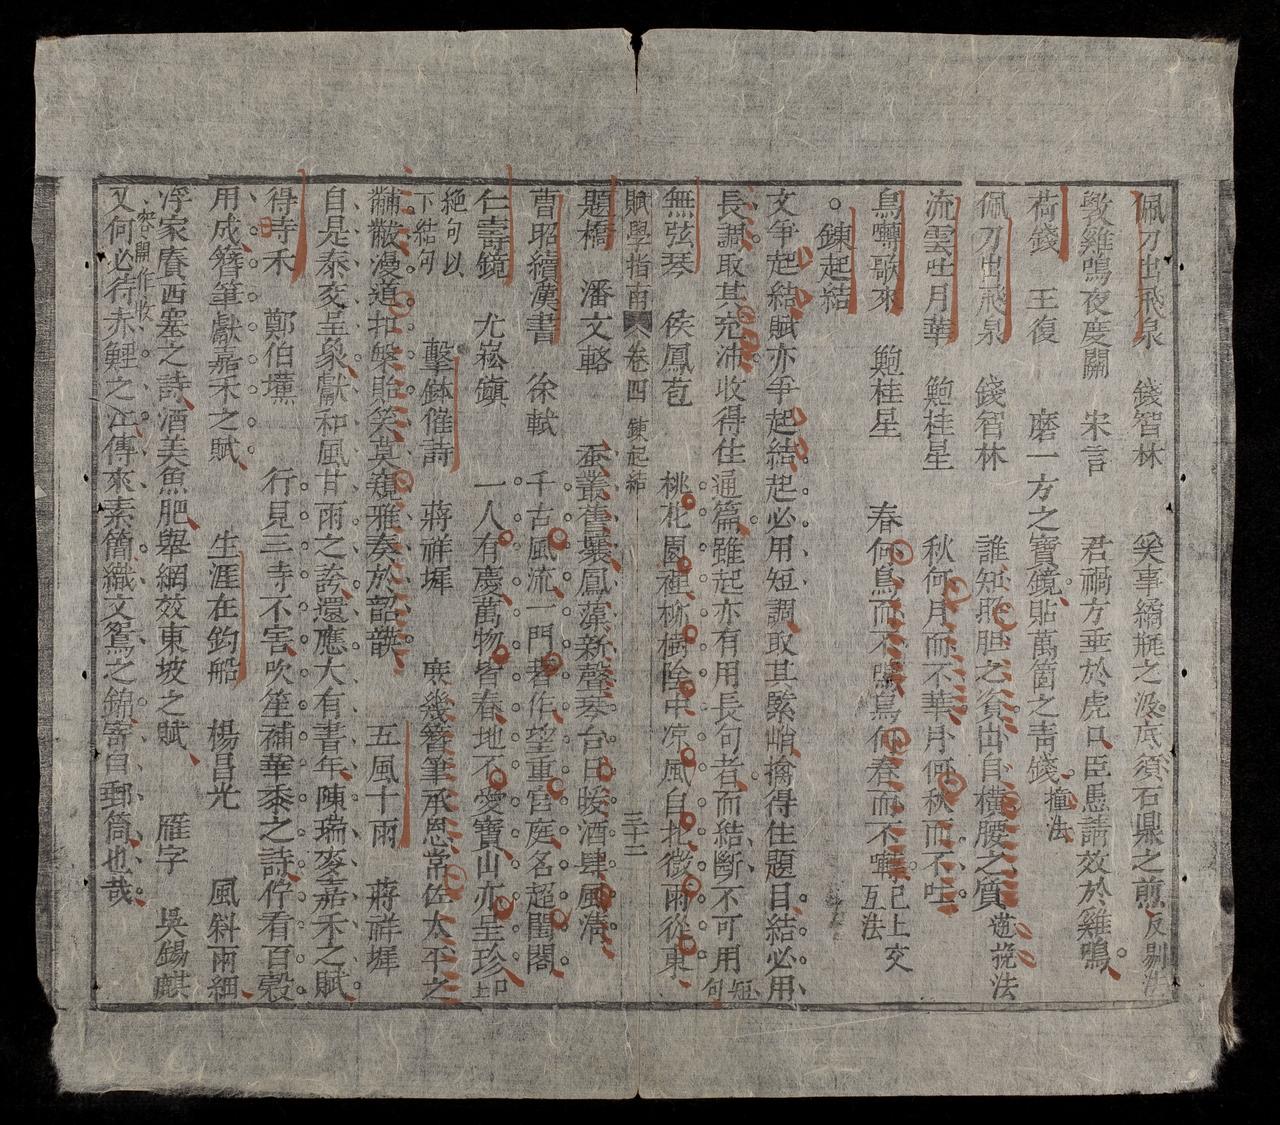 佩刀出飛泉 錢智林 奚事繘甁之汲底須石鼎之煎反剔法
斆雞鳴夜度關 宋言 君禍方垂於虎口臣愚請效於雞鳴
荷錢 王復 磨一方之寶鏡貼萬箇之青錢撞法
佩刀出飛泉 錢智林 誰知耿膽之資出自橫腰之質逆挽法
流雲吐月華 鮑桂星 秋何月而不華月何秋而不吐
鳥囀歌來 鮑桂星 春何鳥而不鳴鳥何春而不囀已上交互法
鍊起結
文爭起結賦亦爭起結起必用短調取其緊峭擒得住題目結必用
長調取其充沛收得住通篇雖起亦有用長句者而結斷不可用短句
無弦琴 侯鳳苞 桃花園裡槲樹陰中凉風自北微雨從東
賦學指南 卷四 鍊起結 三十二
題橋 潘文輅 蚕叢舊壤鳳藻新聲琴台日暖酒肆風淸
曹昭續漢書 徐軾 千古風流一門著作望重宮庭名超閨閣
仁壽鏡 尤崧鎭 一人有慶萬物皆春地不愛寶山亦呈珍
絶句以下結句 擊鉢催詩 蔣祥墀 庶幾簪筆承恩常佐太平之
黼黻漫道扣槃貽笑莫窺雅奏於韶韺 五風十雨 蔣祥墀
自是泰交呈象獻和風甘雨之謠還應大有書年陳瑞麥嘉禾之賦
得時禾 鄭伯壎 行見三時不害吹笙補華黍之詩佇看百穀
用成簪筆獻嘉禾之賦 生涯在釣船 楊昌光 風斜雨細
浮家賡西塞之詩酒美魚肥舉網效東坡之賦 雁字 吳錫麒
又何必待赤鯉之江傳來素簡織文鴛之錦寄自郵筒也哉